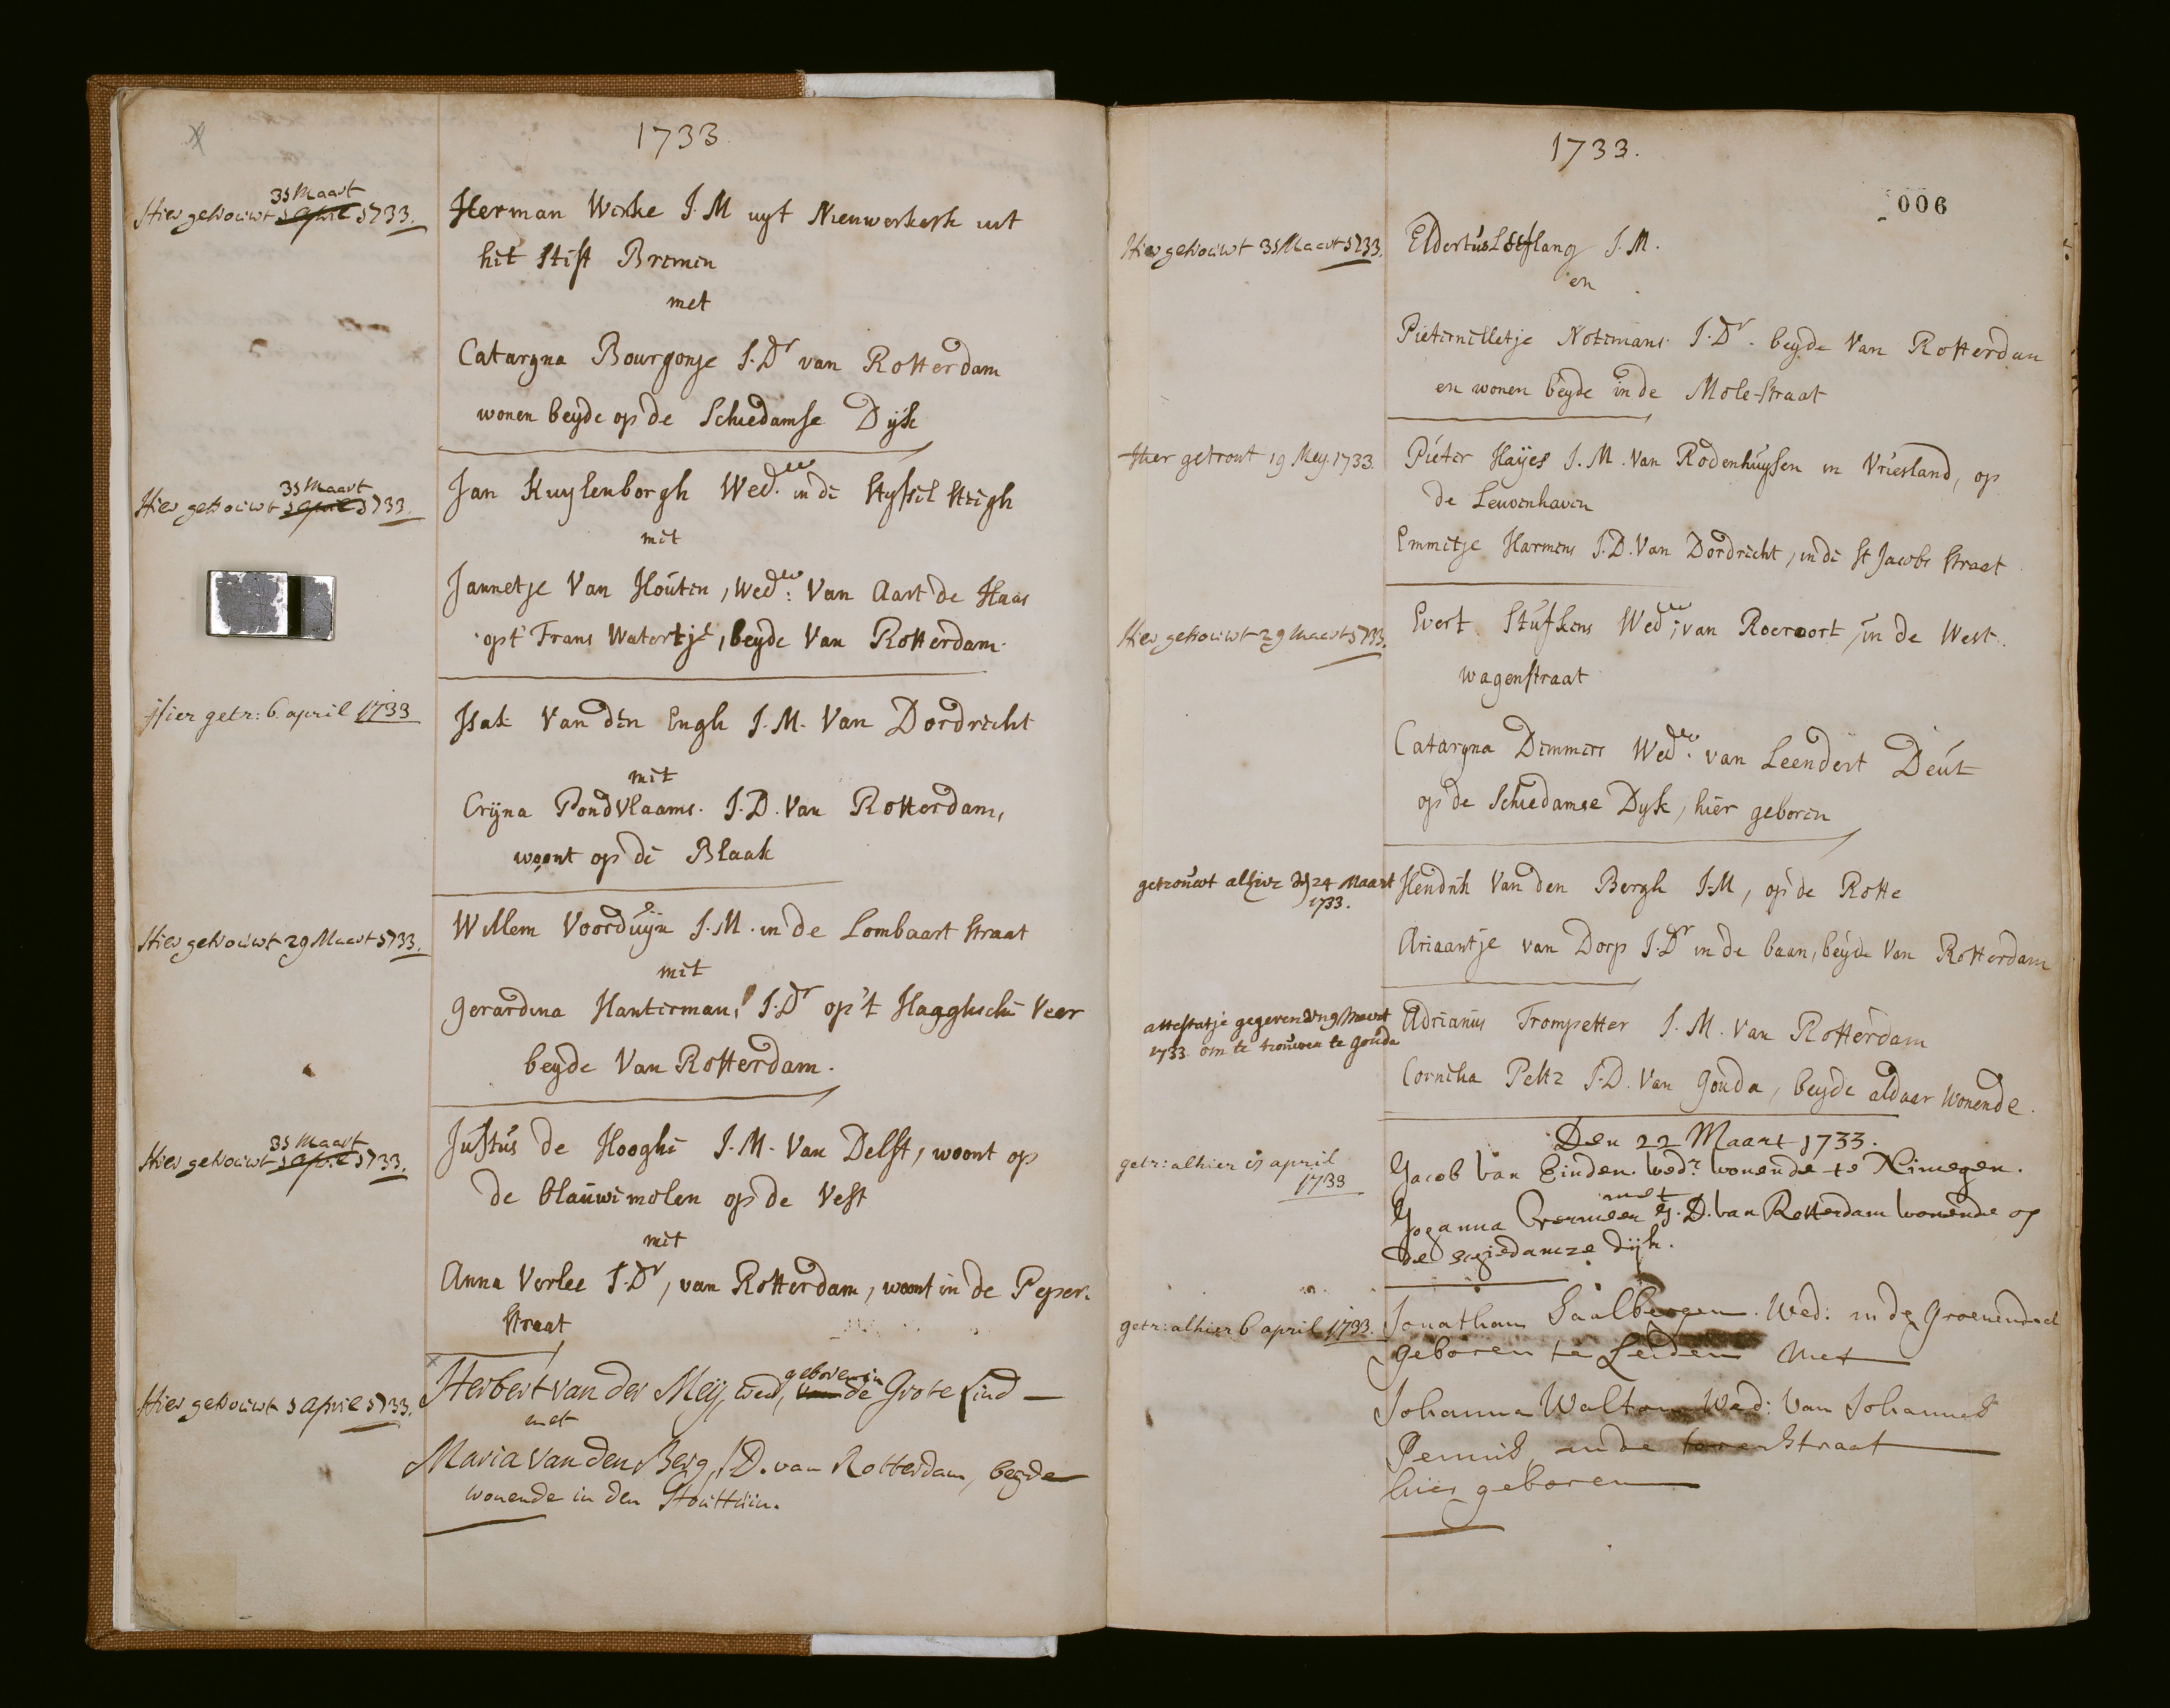 1733.
31 Maart
Hier getrouwt 1 april 1733.
Herman Winke J.M uyt Nieuwerkerk uit
het stift Bremen
met
Cataryna Bourgonje J.Dr van Rotterdam
wonen beyde op de Schiedamse Dijk
31 Maart
Hier getrouwt 1 april 1733.
Jan Kuylenborgh Wedr. in de Stijfsel steigh
met
Jannetje Van Houten, Wedw: Van Aart de Haas
op't Frans Watertje, beyde Van Rotterdam.
Hier getr: 6 april 1733
Isak Van den Engh J.M. Van Dordrecht
met
Cryna Pondvlaams. J.D. Van Rotterdam,
woont op de Blaak
Hier getrouwt 29 Maart 1733.
Willem Voorduijn J.M. in de Lombaart straat
met
Gerardina Hanterman, J.Dr op't Haaghsche Veer
beyde Van Rotterdam.
31 Maart
Hier getrouwt 1 april 1733.
Justus de Hooghe J.M. Van Delft, woont op
de blauwe molen op de Vest
met
Anna Verlee J.Dr, van Rotterdam, woont in de Peper-
straat
Hier getrouwt 1 april 1733.
geboren in
Herbert van der Meij, wed, van de Grote Lind
met
Maria van den Berg, J.D. van Rotterdam, beyde
wonende in den Houttuin.
1733.
006
Hier getrouwt 31 Maart 1733.
Eldertus Loeflang J.M.
en
Pieternelletje Notemans. J.Dr. beyde Van Rotterdam
en wonen beyde in de Mole-straat
Hier getrout 19 Mey. 1733.
Pieter Hayes J.M. Van Rodenhuysen in Vriesland, op
de Leuvenhaven
Emmetje Harmens J.D. Van Dordrecht, in de St Jacobs straat
Hier getrouwt 29 Maart 1733.
Evert Stufkens Wedr; van Roeroort, in de West-
wagenstraat
Cataryna Demmers Wedw. van Leendert Deut
op de Schiedamse Dyk, hier geboren
getrouwt alhier dn 24 Maart
1733.
Hendrik Van den Bergh J.M, op de Rotte
Ariaantje van Dorp J.Dr in de baan, beyde Van Rotterdam
attestatje gegeven den 9 Maert
1733. om te trouwen te gouda
Adrianus Trompetter J.M. Van Rotterdam
Cornelia Peltz J.D. Van Gouda, beyde aldaar wonende.
Den 22 Maart 1733.
getr: alhier april
1733
Jacob van Einden. wedr. wonende te Nimegen.
met
Joganna Vermeer J.D. van Rotterdam wonende op
de sgiedamze dijk.
getr: alhier 6 april 1733.
Jonathan Saalbergen. Wed: in de Groenendael
geboren te Leiden Met
Johanna Walton Wed: van Johannes
Pennis, in de straat
hier geboren